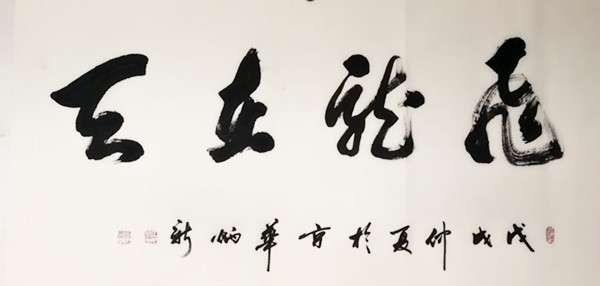 飛龍在天
戊戌仲夏於京華炳新